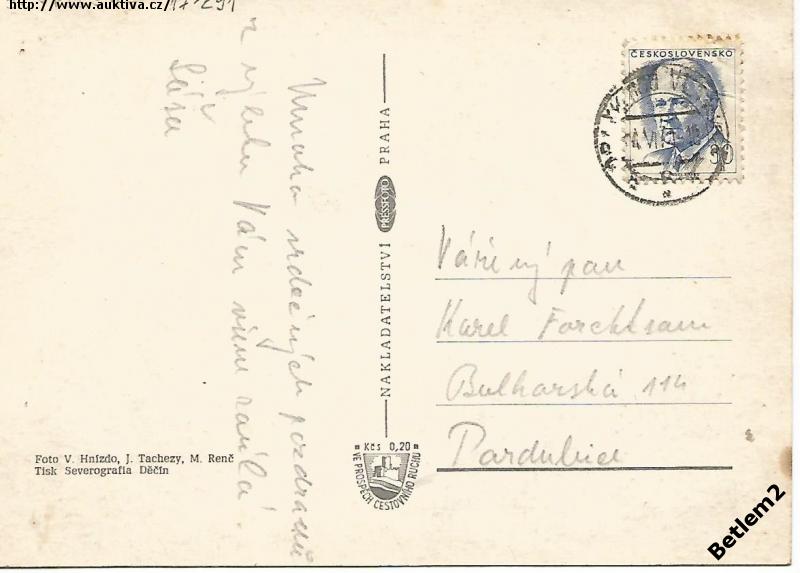 http://www.auktiva.cz/17-291
Mnoho srdečných pozdravů
z výletu Vám všem zasílá
Sáša
NAKLADATELSTVÍ PRESSFOTO PRAHA
ČESKOSLOVENSKO
Vážený pan
Karel Forchtsam
Bulharská 114
Pardubice
Kčs 0,20
VE PROSPĚCH CESTOVNÍHO RUCHU
Foto V. Hnízdo, J. Tachezy, M. Renč
Tisk Severografia Děčín
Betlem2